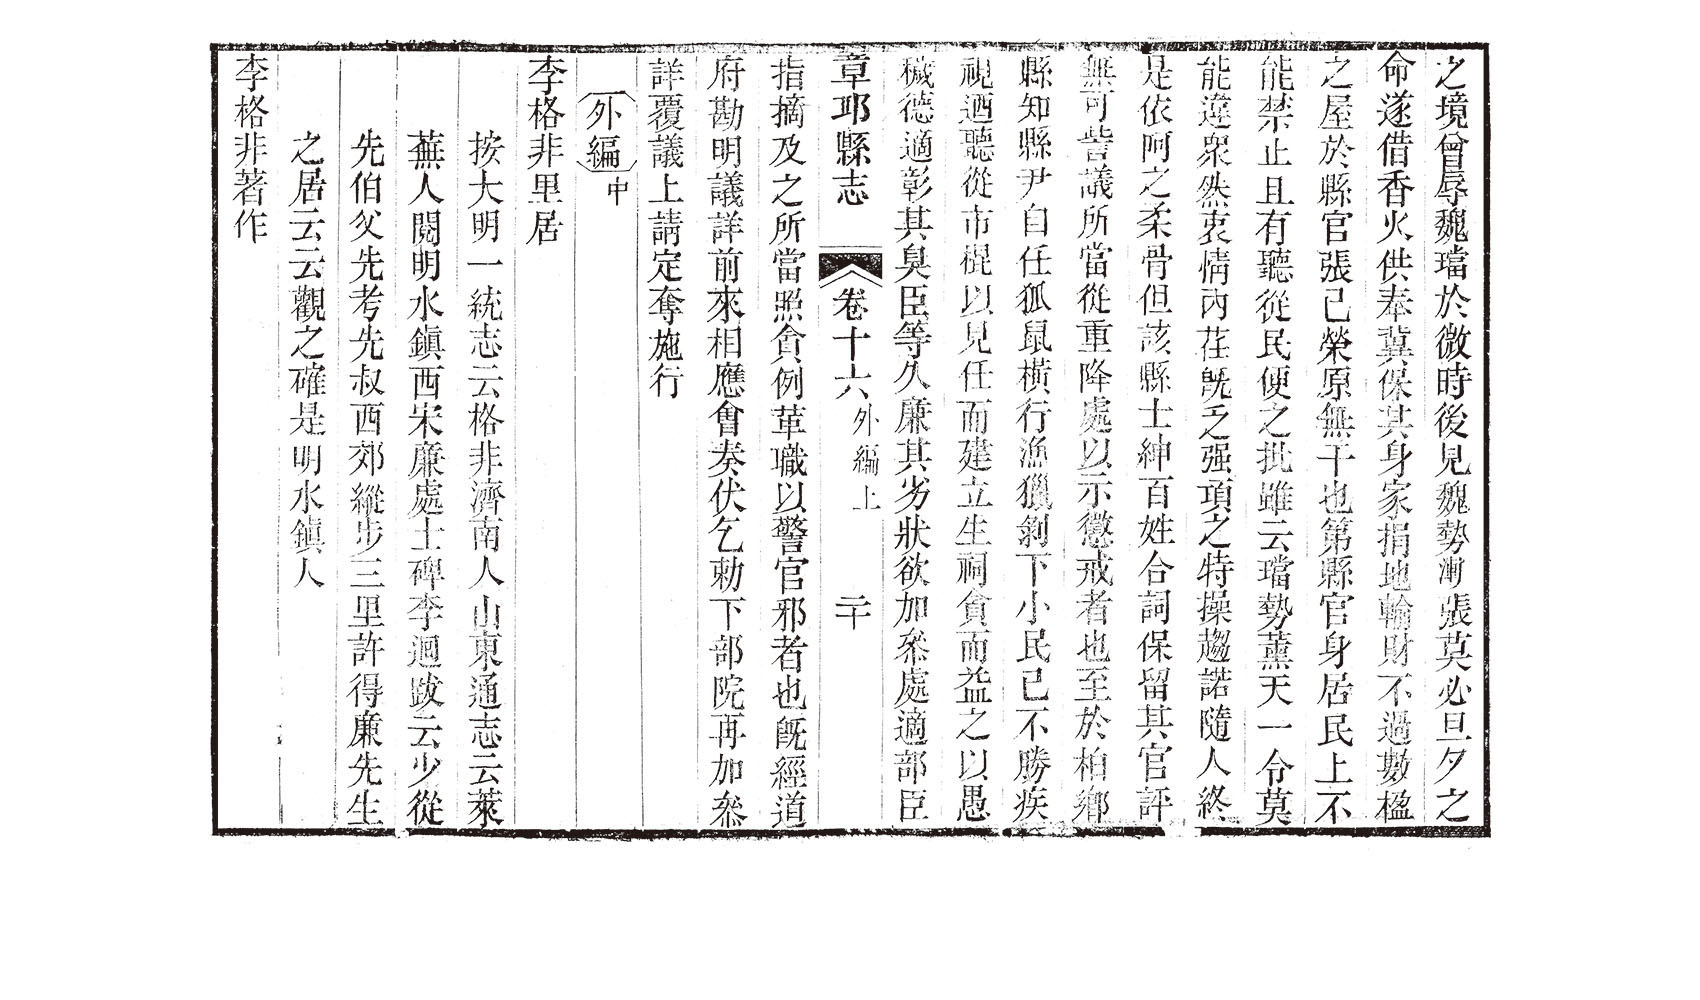 之境曾辱魏璫於微時後見魏勢漸張莫必旦夕之
命遂借香火供奉冀保其身家捐地輸財不過數楹
之屋於縣官張已榮原無干也第縣官身居民上不
能禁止且有聽從民便之批雖云璫勢薰天一令莫
能違衆然衷情內荏旣乏强項之特操趨諾隨人終
是依阿之柔骨但該縣士紳百姓合詞保留其官評
無可訾議所當從重降處以示懲戒者也至於柏鄉
縣知縣尹自任狐鼠橫行漁獵剝下小民已不勝疾
視迺聽從市棍以見任而建立生祠貪而益之以愚
穢德適彰其臭臣等久廉其劣狀欲加叅處適部臣
章邱縣志 卷十六 外編上 二十
指摘及之所當照貪例革職以警官邪者也旣經道
府勘明議詳前來相應會奏伏乞勅下部院再加叅
詳覆議上請定奪施行
外編中
李格非里居
按大明一統志云格非濟南人山東通志云萊
蕪人閱明水鎭西宋廉處士碑李迥跋云少從
先伯父先考先叔西郊縱步三里許得廉先生
之居云云觀之確是明水鎭人
李格非著作